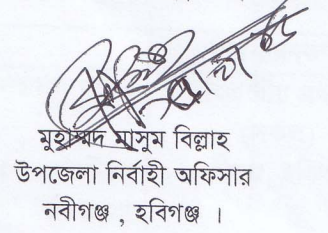 মুহাম্মদ মাসুম বিল্লাহ
উপজেলা নির্বাহী অফিসার
নবীগঞ্জ , হবিগঞ্জ ।